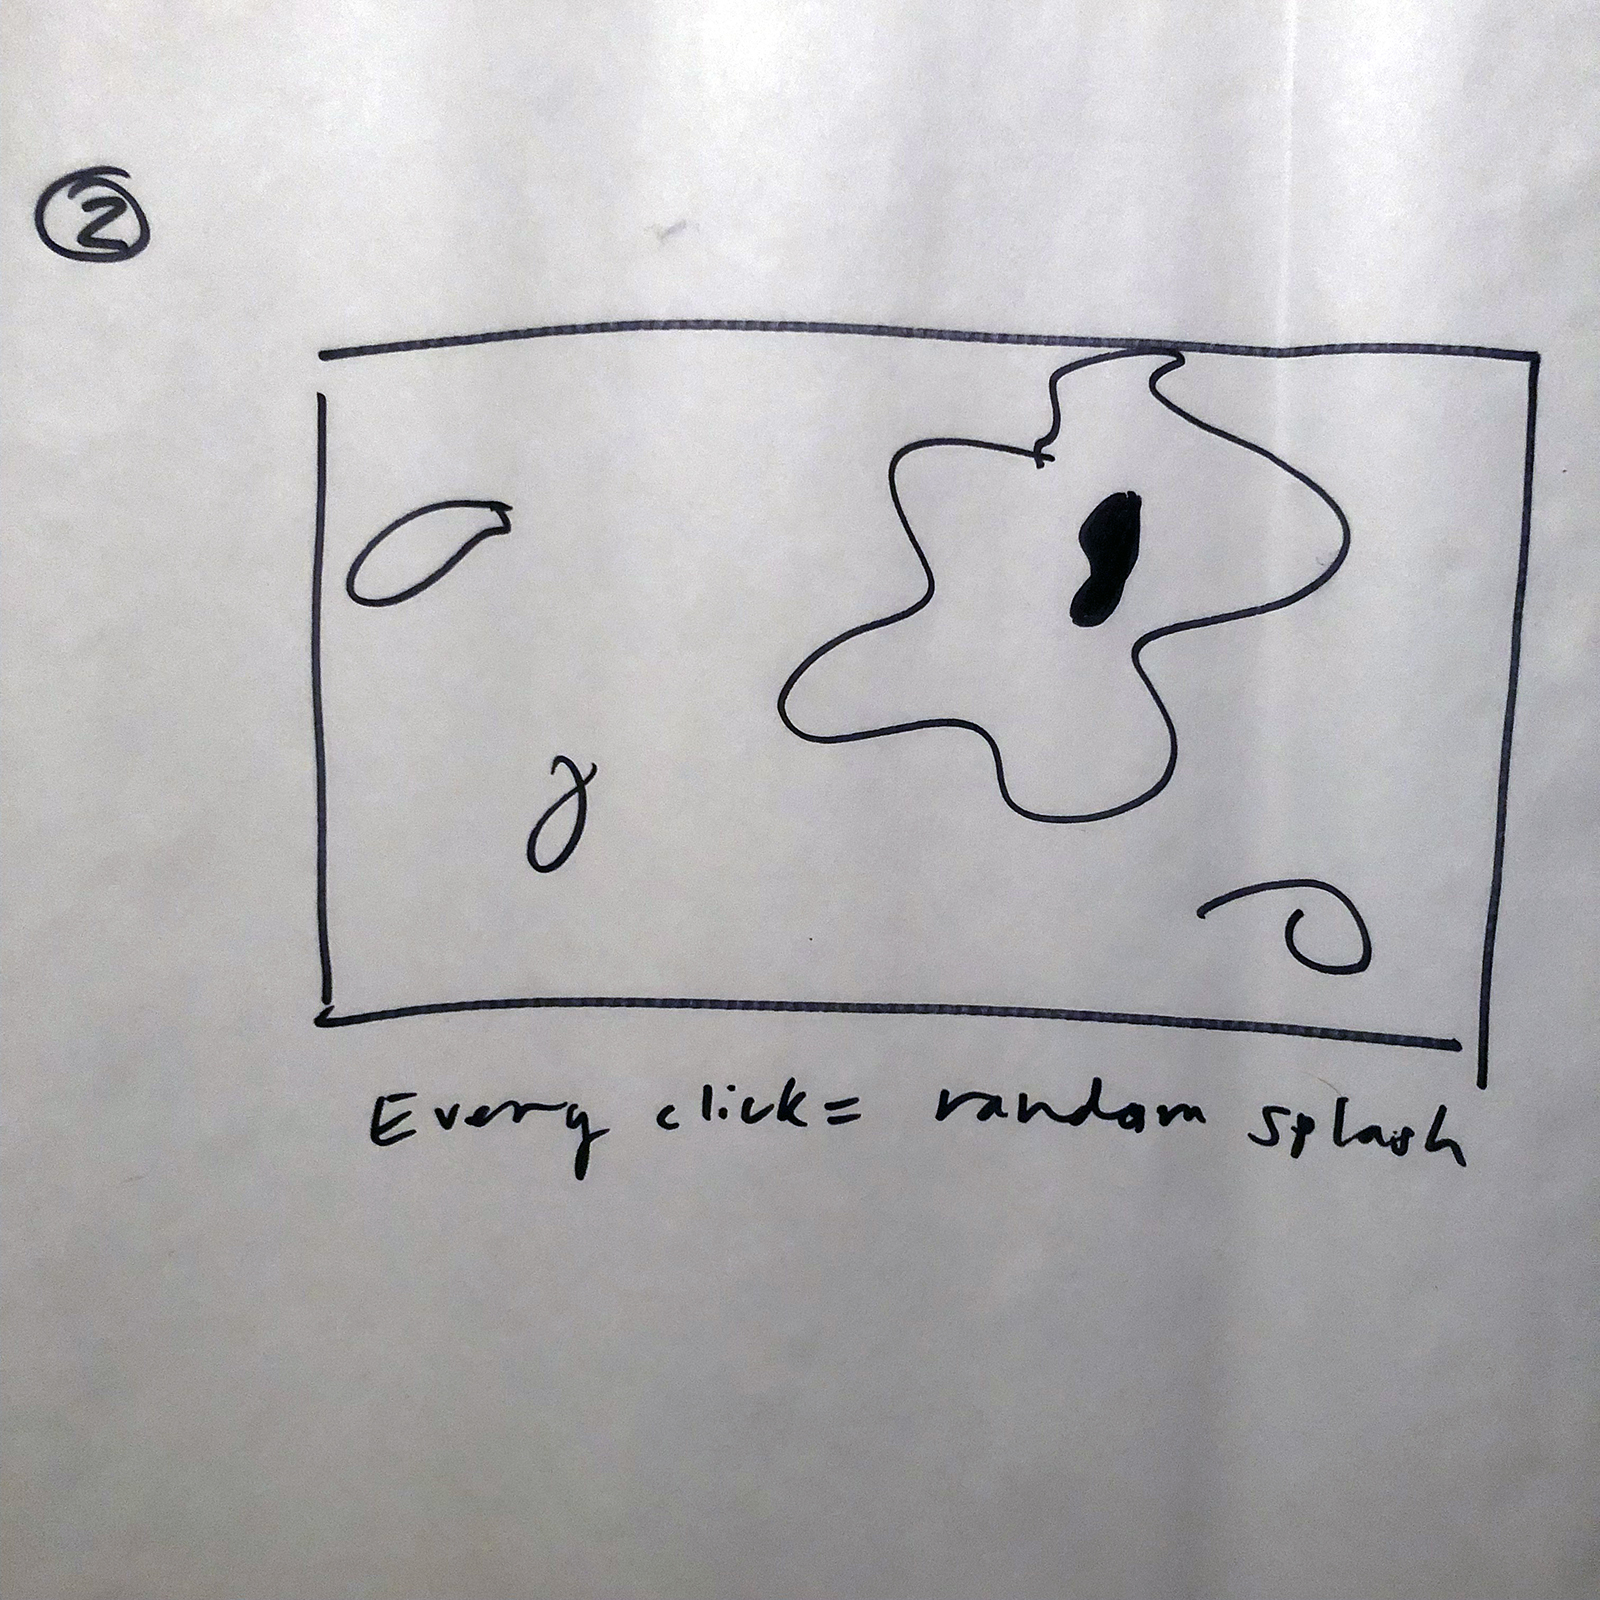 2
Every click = random splash